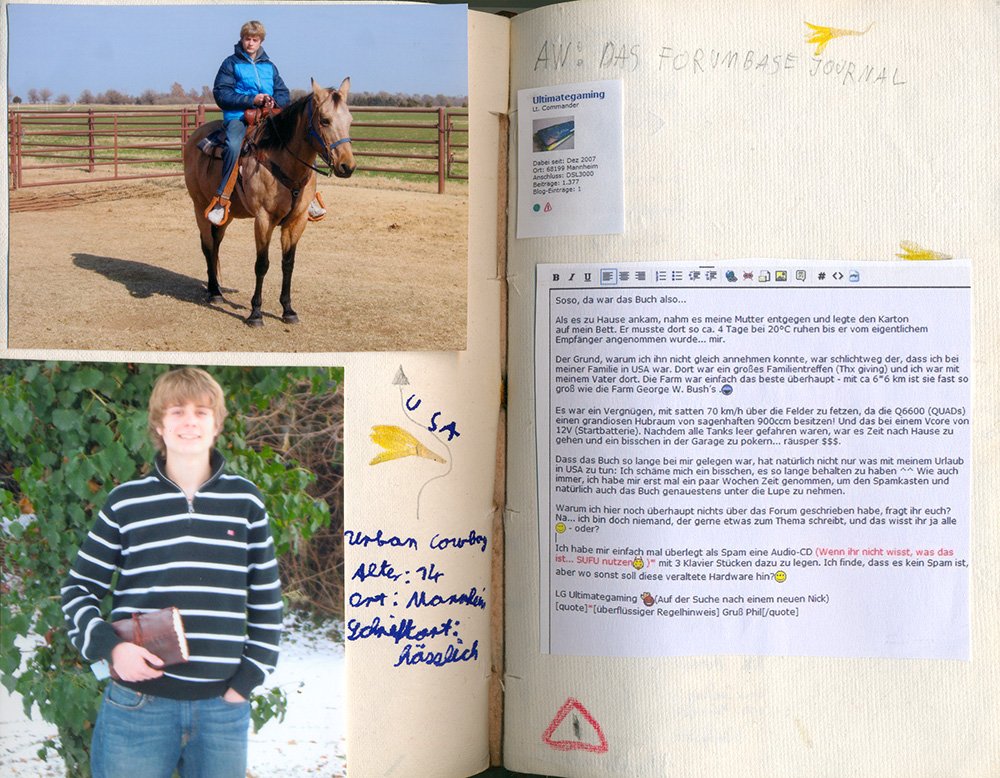 USA
Urban Cowboy
Alter: 14
Ort: Mannheim
Schriftart:
hässlich
AW: DAS FORUMBASE JOURNAL
Ultimategaming
Lt. Commander
Dabei seit: Dez 2007
Ort: 68199 Mannheim
Anschluss: DSL3000
Beiträge: 1.377
Blog-Einträge: 1
B I U
# <>
Soso, da war das Buch also...
Als es zu Hause ankam, nahm es meine Mutter entgegen und legte den Karton
auf mein Bett. Er musste dort so ca. 4 Tage bei 20°C ruhen bis er vom eigentlichem
Empfänger angenommen wurde... mir.
Der Grund, warum ich ihn nicht gleich annehmen konnte, war schlichtweg der, dass ich bei
meiner Familie in USA war. Dort war ein großes Familientreffen (Thx giving) und ich war mit
meinem Vater dort. Die Farm war einfach das beste überhaupt - mit ca 6*6 km ist sie fast so
groß wie die Farm George W. Bush's .
Es war ein Vergnügen, mit satten 70 km/h über die Felder zu fetzen, da die Q6600 (QUADs)
einen grandiosen Hubraum von sagenhaften 900ccm besitzen! Und das bei einem Vcore von
12V (Startbatterie). Nachdem alle Tanks leer gefahren waren, war es Zeit nach Hause zu
gehen und ein bisschen in der Garage zu pokern... räusper $$$.
Dass das Buch so lange bei mir gelegen war, hat natürlich nicht nur was mit meinem Urlaub
in USA zu tun: Ich schäme mich ein bisschen, es so lange behalten zu haben ^^ Wie auch
immer, ich habe mir erst mal ein paar Wochen Zeit genommen, um den Spamkasten und
natürlich auch das Buch genauestens unter die Lupe zu nehmen.
Warum ich hier noch überhaupt nichts über das Forum geschrieben habe, fragt ihr euch?
Na... ich bin doch niemand, der gerne etwas zum Thema schreibt, und das wisst ihr ja alle
- oder?
Ich habe mir einfach mal überlegt als Spam eine Audio-CD (Wenn ihr nicht wisst, was das
ist... SUFU nutzen )" mit 3 Klavier Stücken dazu zu legen. Ich finde, dass es kein Spam ist,
aber wo sonst soll diese veraltete Hardware hin?
LG Ultimategaming (Auf der Suche nach einem neuen Nick)
[quote]"[überflüssiger Regelhinweis] Gruß Phil[/quote]